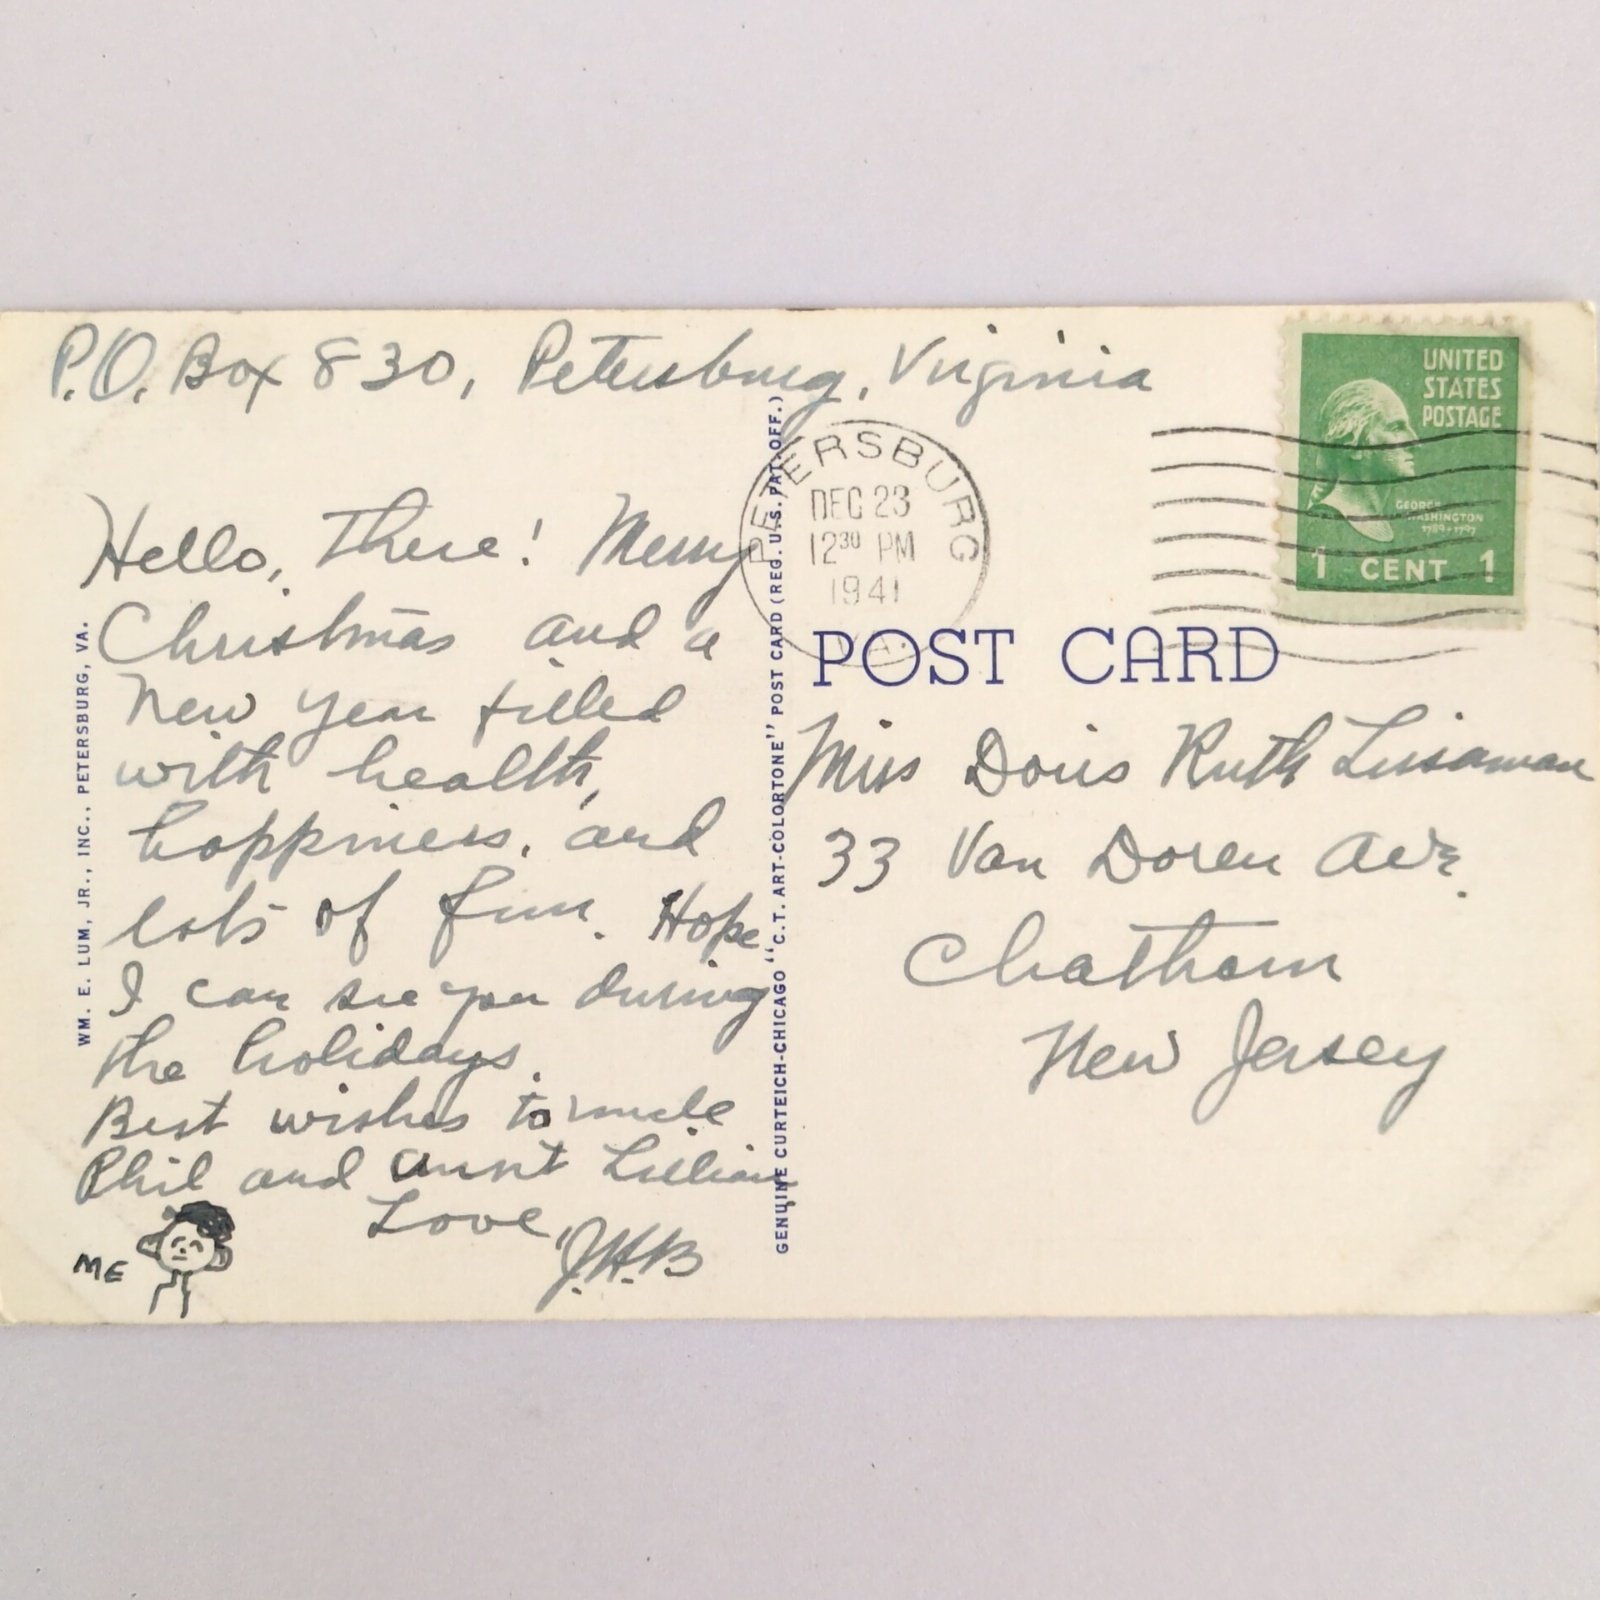 P.O. Box 830, Petersburg, Virginia
Hello, there! Merry
Christmas and a
New Year filled
with health,
happiness, and
lots of fun. Hope
I can see you during
the holidays.
Best wishes to uncle
Phil and aunt Lillian
Love,
J.H.B
ME
WM. E. LUM, JR., INC., PETERSBURG, VA.
GENUINE CURTEICH-CHICAGO "C.T. ART-COLORTONE" POST CARD (REG. U.S. PAT. OFF.)
PETERSBURG
DEC 23
12 30 PM
1941
UNITED
STATES
POSTAGE
GEORGE
WASHINGTON
1789-1797
1 CENT 1
POST CARD
Miss Doris Ruth
33 Van Doren Ave.
Chatham
New Jersey